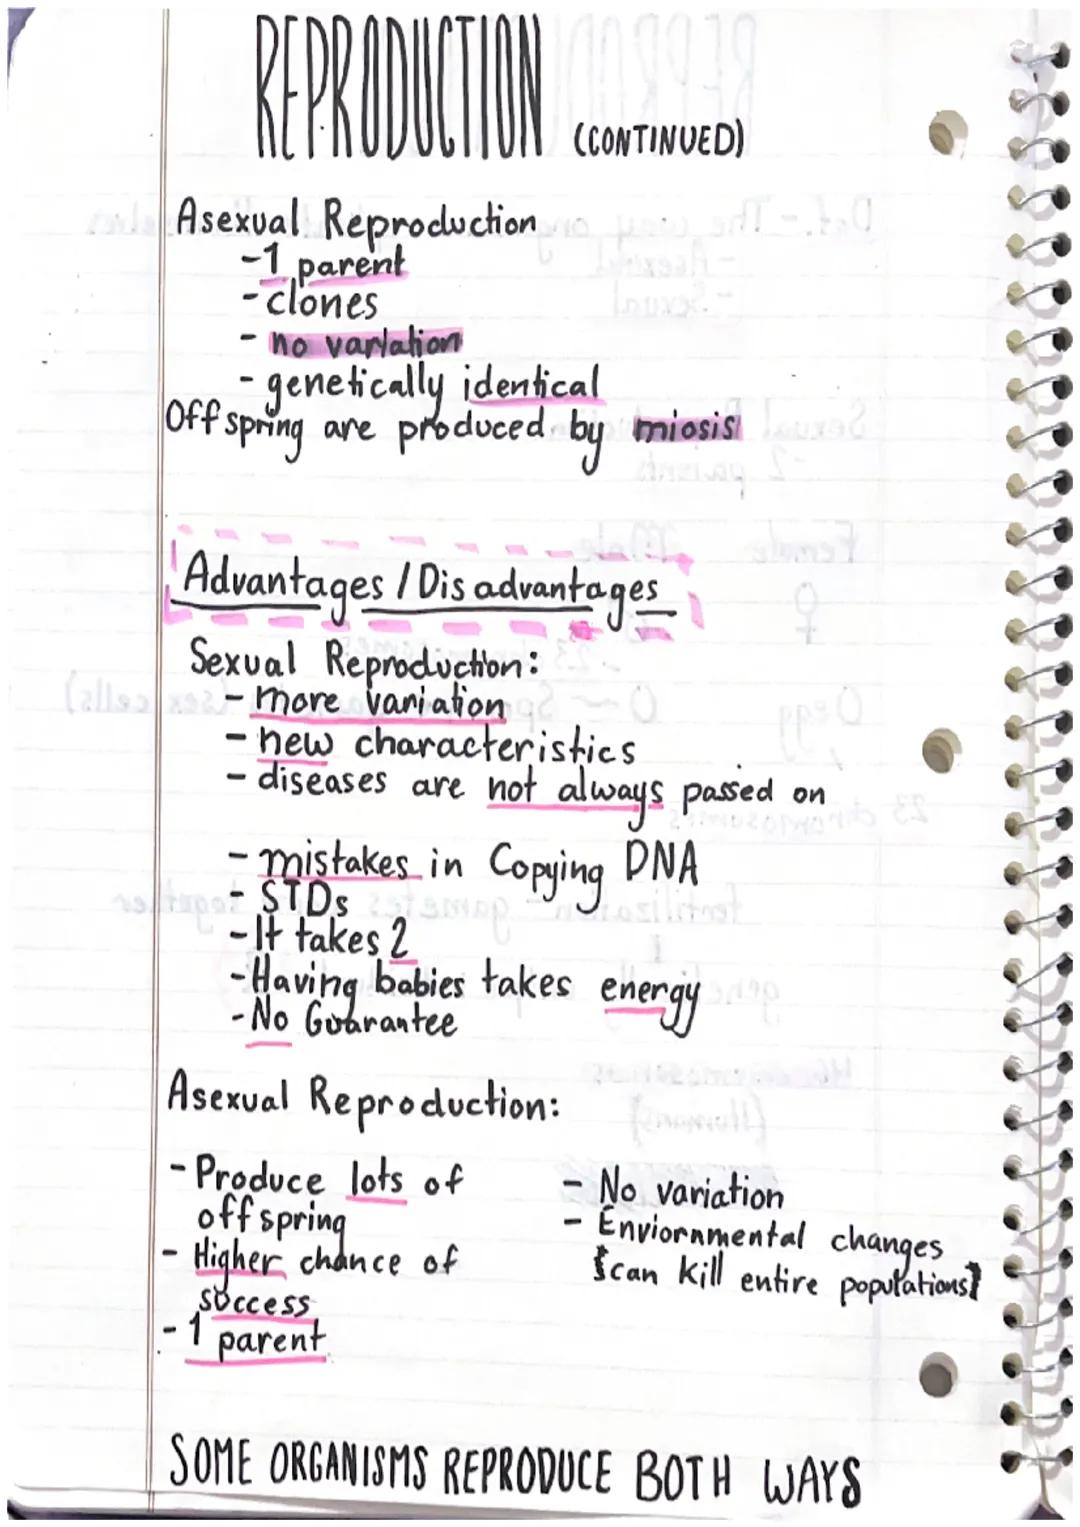 REPRODUCTION (CONTINUED)
Asexual Reproduction
-1 parent
-clones
- no variation
- genetically identical
Offspring are produced by miosis
Advantages / Disadvantages
Sexual Reproduction:
- more variation
- new characteristics
- diseases are not always passed on
- mistakes in Copying DNA
- STDs
- It takes 2
- Having babies takes energy
- No Guarantee
Asexual Reproduction:
- Produce lots of
offspring
- Higher chance of
success
- 1 parent
- No variation
- Enviornmental changes
{can kill entire populations}
SOME ORGANISMS REPRODUCE BOTH WAYS